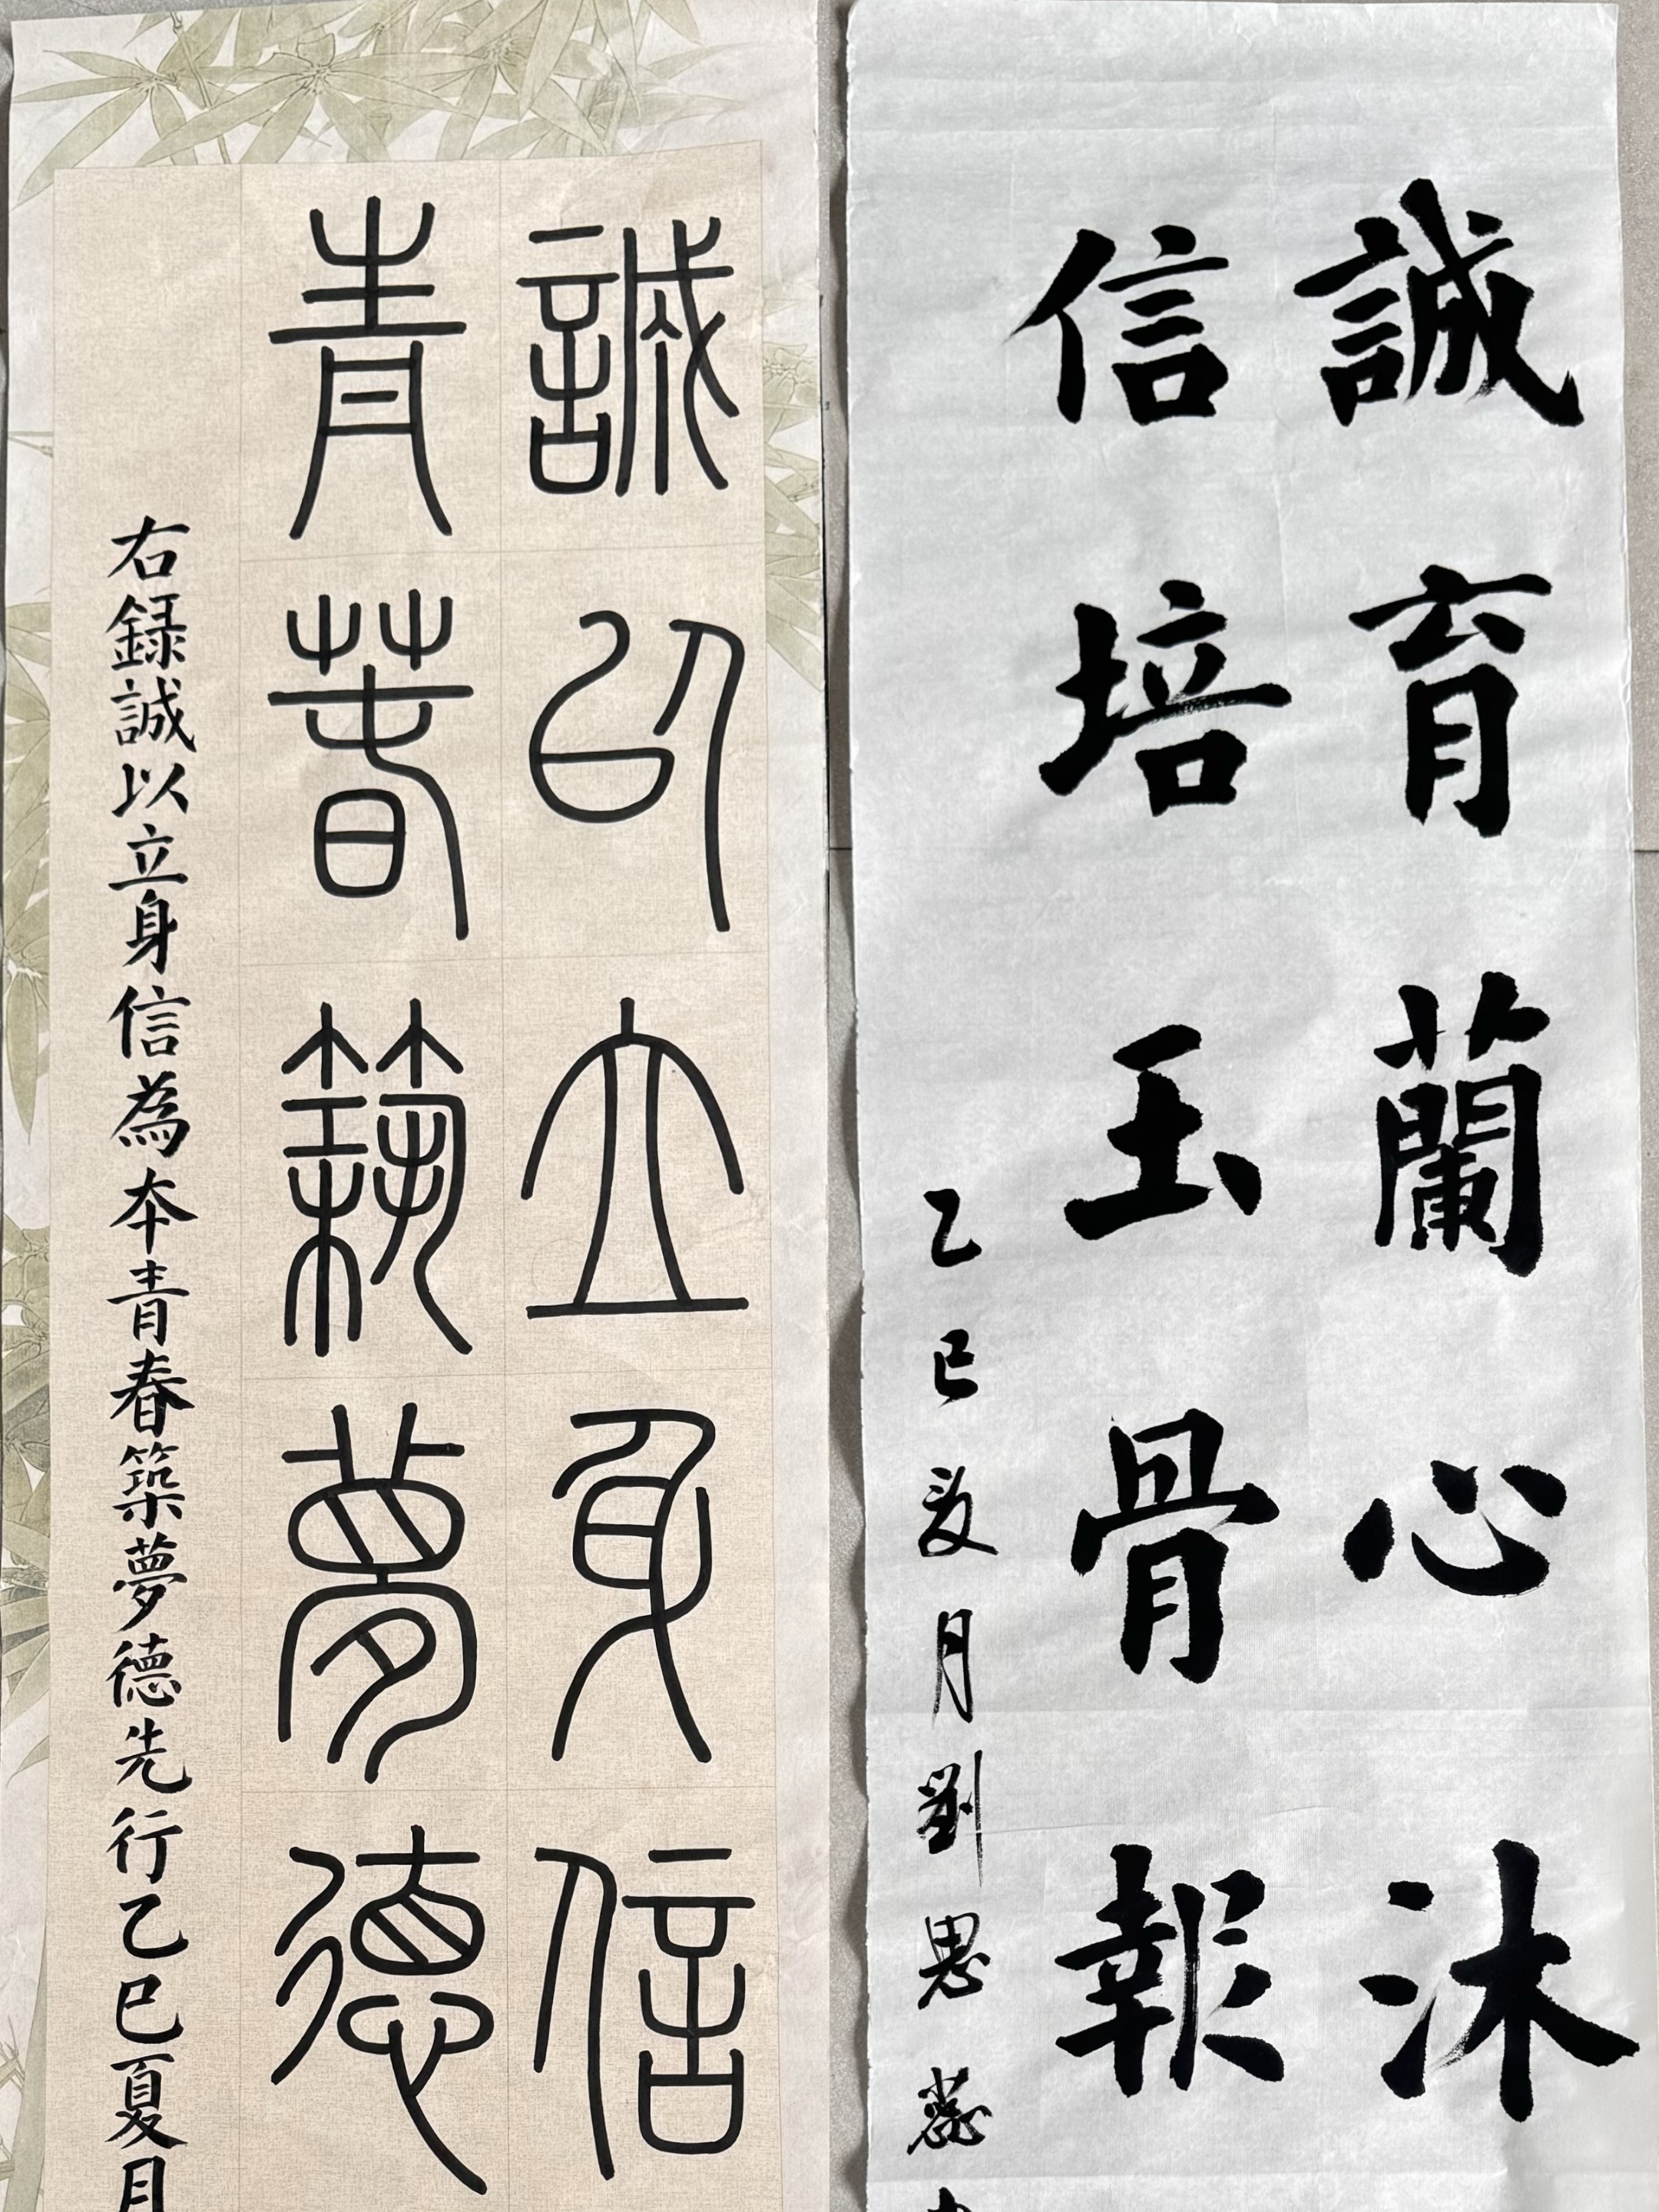 誠育蘭心沐
信培玉骨報
乙巳夏月劉思蕊
誠以立身信
青春築夢德
右録誠以立身信為本青春築夢德先行乙巳夏月